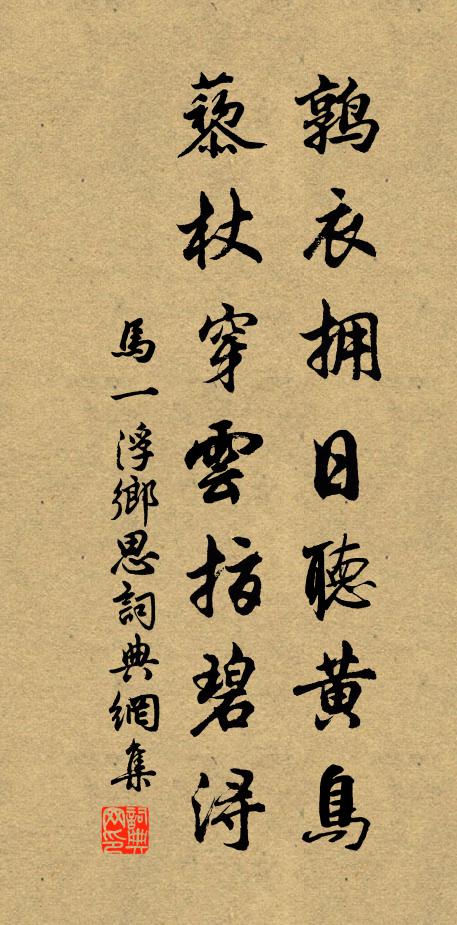 鶉衣拥日聽黃鳥
藜杖穿雲指碧潯
馬一浮鄉思詞典網集
詞典网印